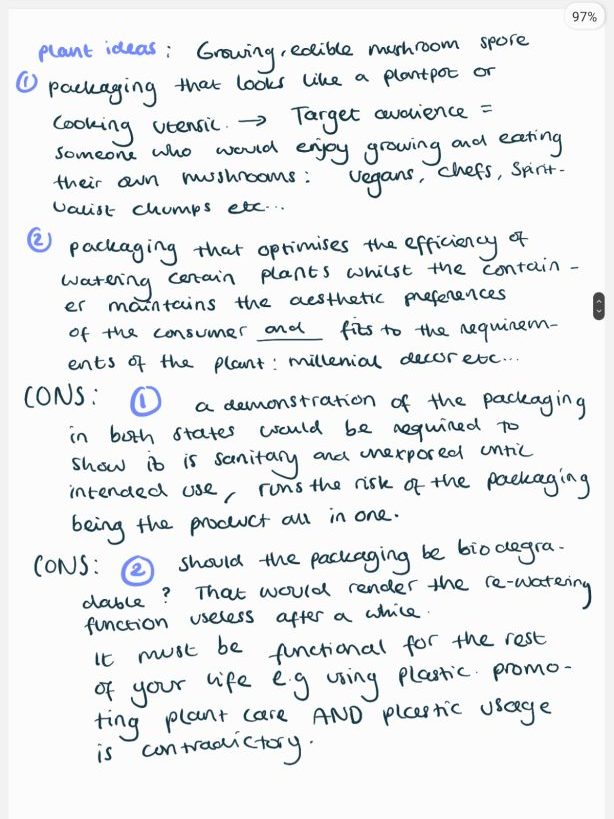 97%
plant ideas : Growing, edible mushroom spore
① packaging that looks like a plantpot or
cooking utensil. → Target audience =
someone who would enjoy growing and eating
their own mushrooms : vegans, chefs, Spirit-
ualist chumps etc...
② packaging that optimises the efficiency of
watering certain plants whilst the contain -
er maintains the aesthetic preferences
of the consumer and fits to the requirem-
ents of the plant : millenial decor etc...
CONS : ① a demonstration of the packaging
in both states would be required to
show it is sanitary and unexposed until
intended use, runs the risk of the packaging
being the product all in one.
CONS : ② should the packaging be biodegra-
dable ? That would render the re-watering
function useless after a while.
It must be functional for the rest
of your life e.g using plastic. promo-
ting plant care AND plastic usage
is contradictory.